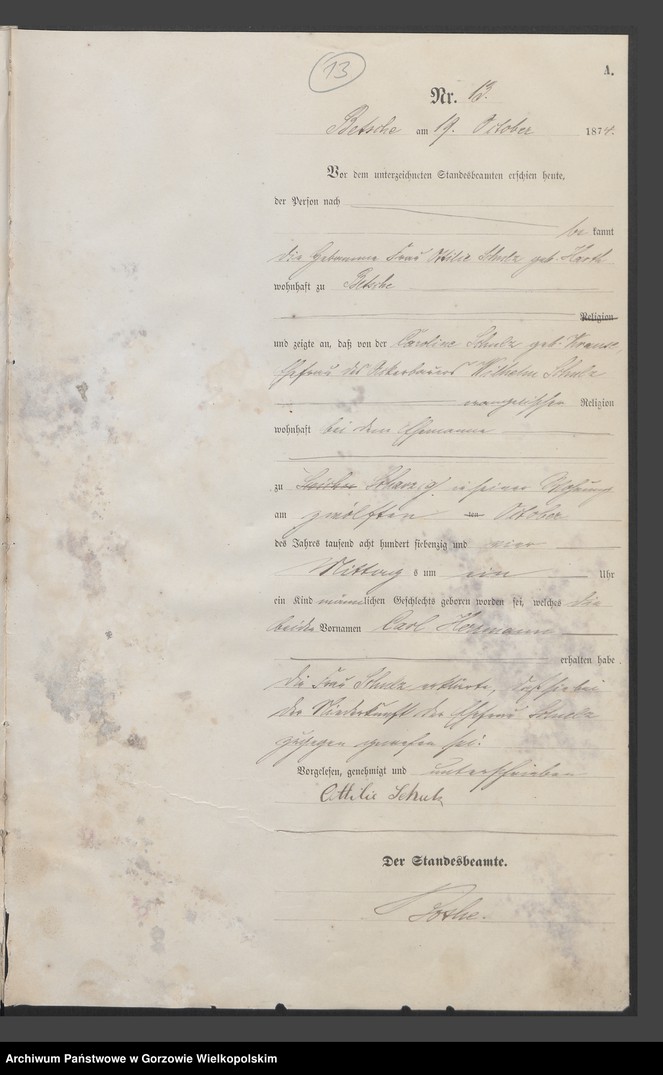 13
A.
Nr. 13.
Betsche am 19. October 1874.
Vor dem unterzeichneten Standesbeamten erschien heute,
der Person nach
be kannt
die Hebamme Frau Ottilie Schulz geb.
wohnhaft zu Betsche
Religion
und zeigte an, daß von der Caroline Schulz geb. Krause,
Ehefrau des Ackerbauers Wilhelm Schulz
evangelischen Religion
wohnhaft bei dem Ehemanne
zu in seiner Wohnung
am zwölften ten October
des Jahres tausend acht hundert siebenzig und vier
Mittag s um ein Uhr
ein Kind männlichen Geschlechts geboren worden sei, welches die
beiden Vornamen Carl Hermann
erhalten habe.
die Frau Schulz erklärte, daß sie bei
der Niederkunft der Ehefrau Schulz
zugegen gewesen sei.
Vorgelesen, genehmigt und unterschrieben
Ottilie Schulz
Der Standesbeamte.
Archiwum Państwowe w Gorzowie Wielkopolskim